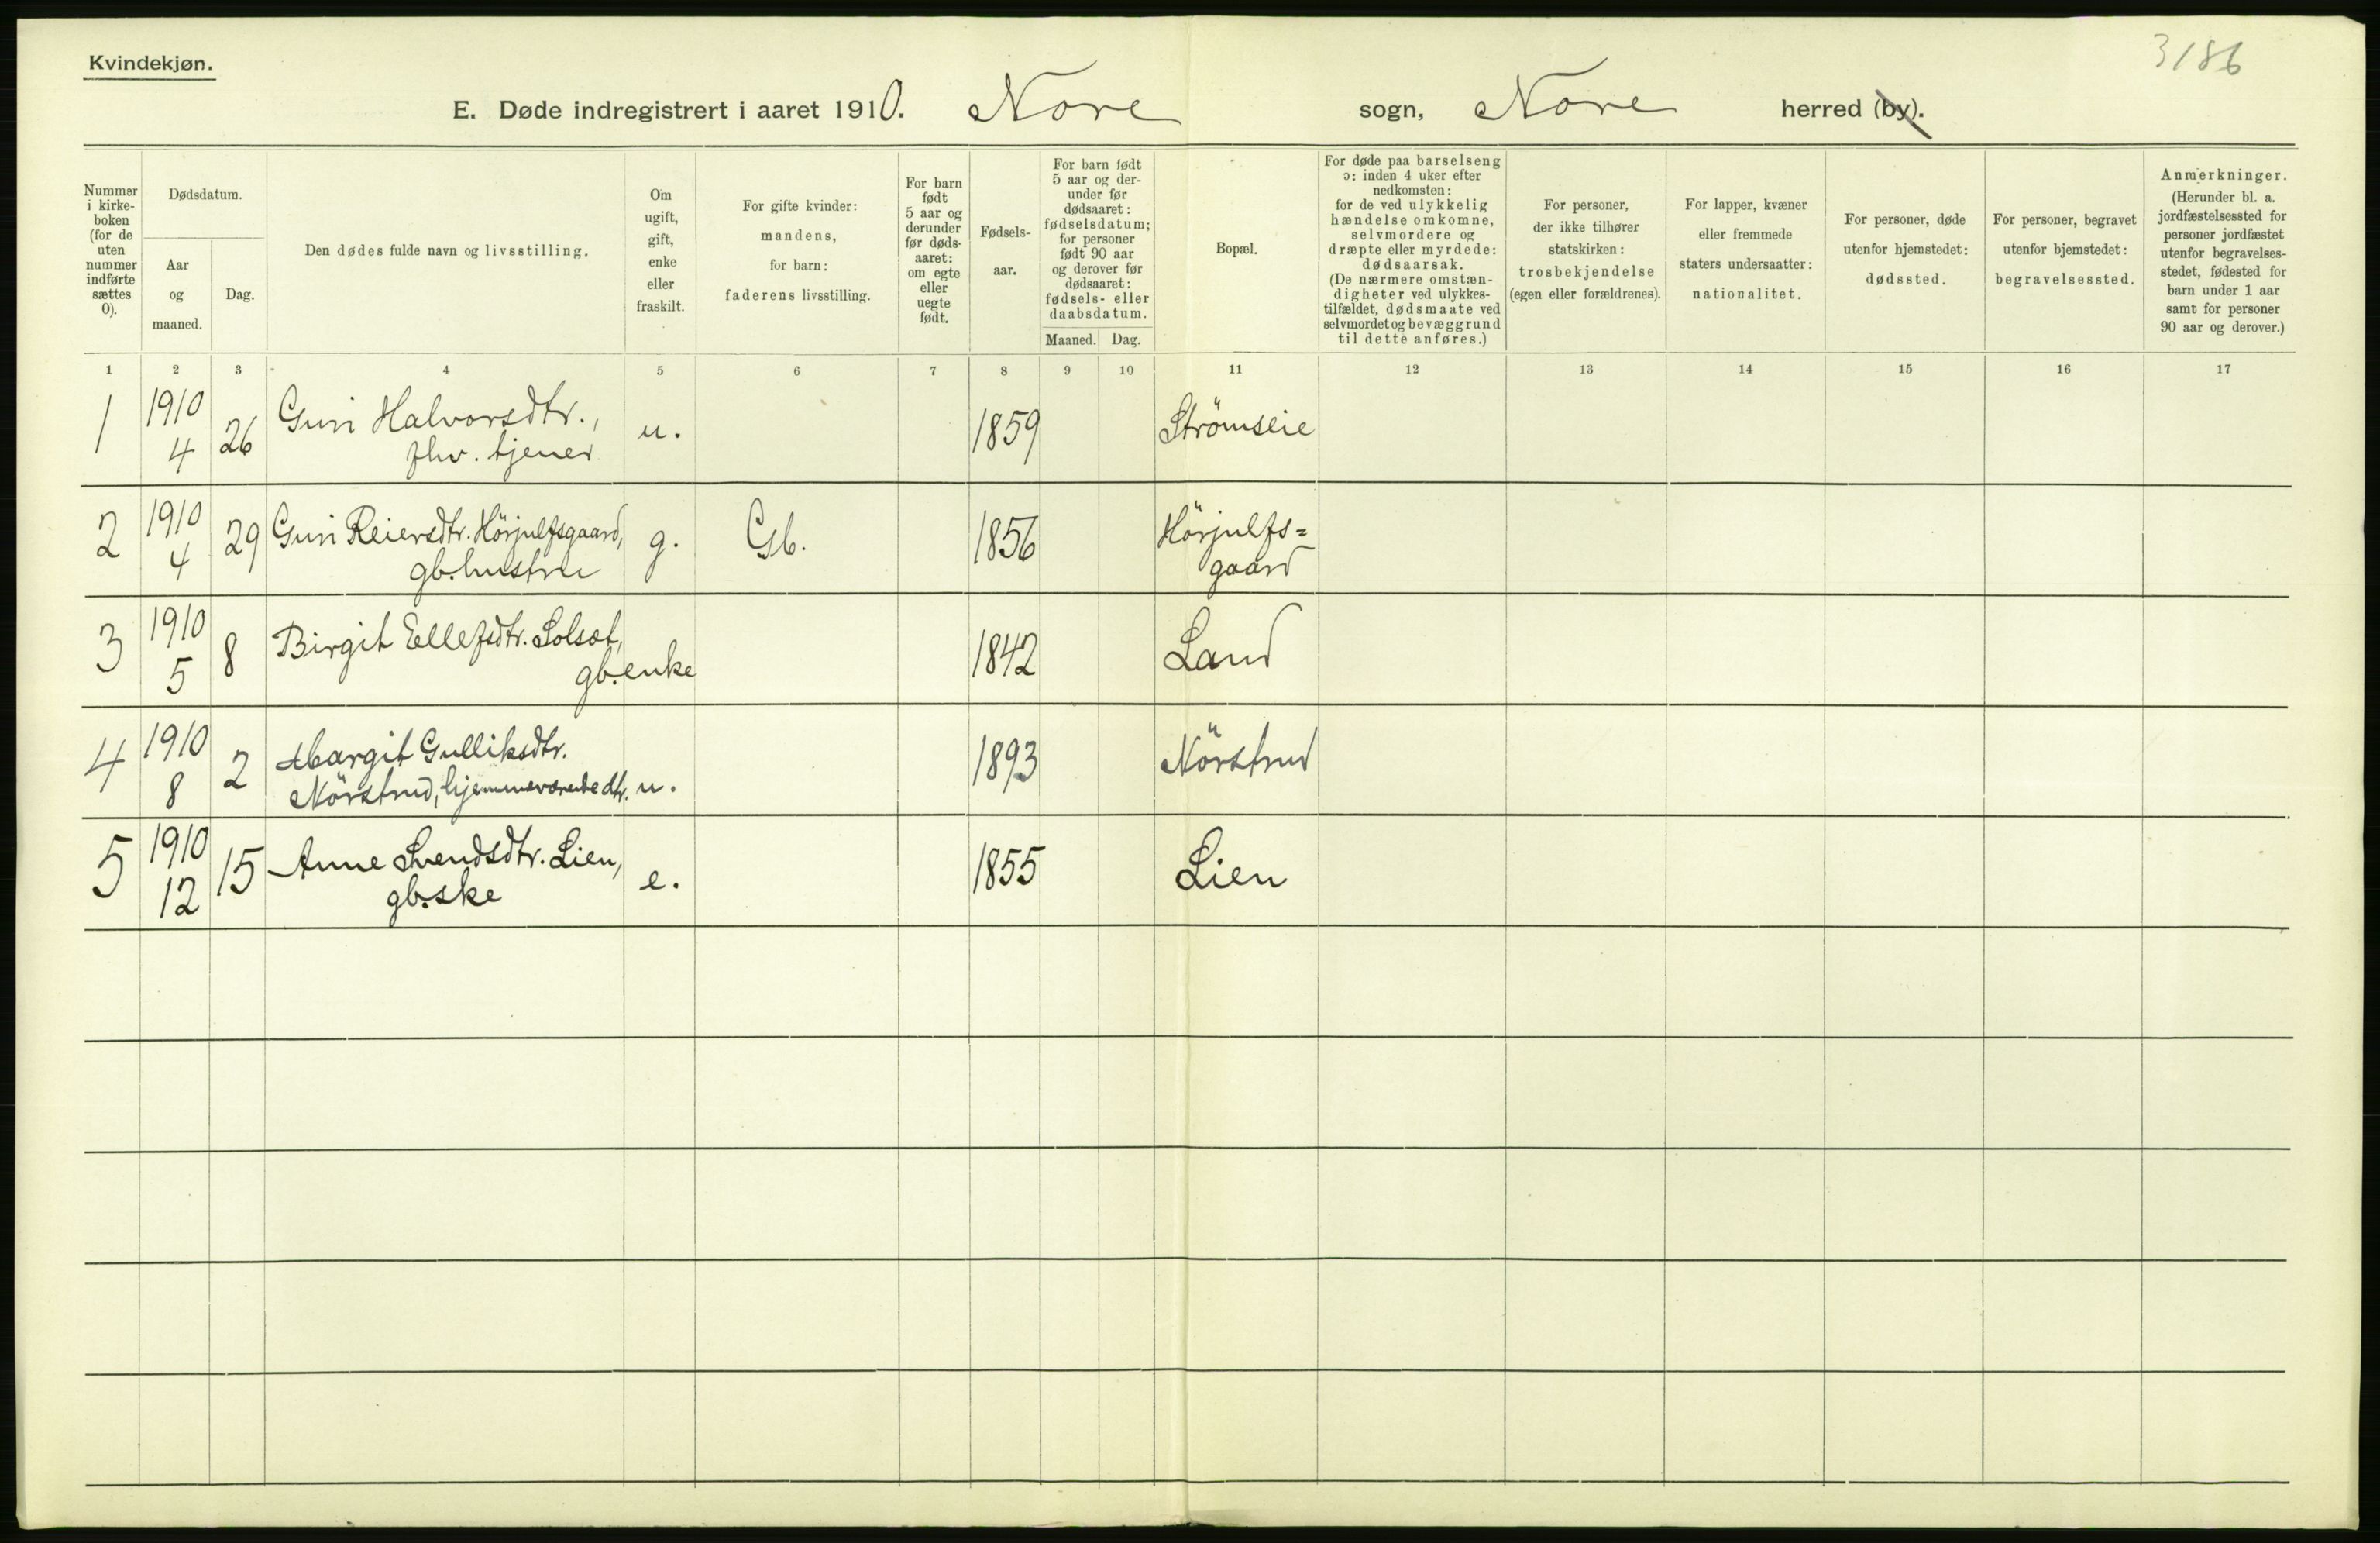 Kvindekjøn.
3186
E. Døde indregistrert i aaret 1910. Nore sogn, Nore herred (by).
Nummer i kirke- boken (for de uten nummer indførte sættes 0).
Dødsdatum.
Aar og maaned.
Dag.
Den dødes fulde navn og livsstilling.
Om ugift, gift, enke eller fraskilt.
For gifte kvinder: mandens, for barn: faderens livsstilling.
For barn født 5 aar og derunder før døds- aaret: om egte eller uegte født.
Fødsels- aar.
For barn født 5 aar og der- under før dødsaaret: fødselsdatum; for personer født 90 aar og derover før dødsaaret: fødsels- eller daabsdatum.
Maaned. Dag.
Bopæl.
For døde paa barselseng ɔ: inden 4 uker efter nedkomsten: for de ved ulykkelig hændelse omkomne, selvmordere og dræpte eller myrdede: dødsaarsak. (De nærmere omstæn- digheter ved ulykkes- tilfældet, dødsmaate ved selvmordet og bevæggrund til dette anføres.)
For personer, der ikke tilhører statskirken: trosbekjendelse (egen eller forældrenes).
For lapper, kvæner eller fremmede staters undersaatter: nationalitet.
For personer, døde utenfor hjemstedet: dødssted.
For personer, begravet utenfor bjemstedet: begravelsessted.
Anmerkninger. (Herunder bl. a. jordfæstelsessted for personer jordfæstet utenfor begravelses- stedet, fødested for barn under 1 aar samt for personer 90 aar og derover.)
1 2 3 4 5 6 7 8 9 10 11 12 13 14 15 16 17
1 1910 4 26 Guri Halvorsdtr., fhv. tjener u. 1859 Strömseie
2 1910 4 29 Guri Reiersdtr. Hörjulfsgaard, gb.hustru g. Gb. 1856 Hörjulfs= gaard
3 1910 5 8 Birgit Ellefsdtr. Solsæt, gb.enke 1842 Land
4 1910 8 2 Margit Gulliksdtr. Nörstrud, hjemmeværende dtr. u. 1893 Nörstrud
5 1910 12 15 Anne Svendsdtr. Lien, gb.ske e. 1855 Lien